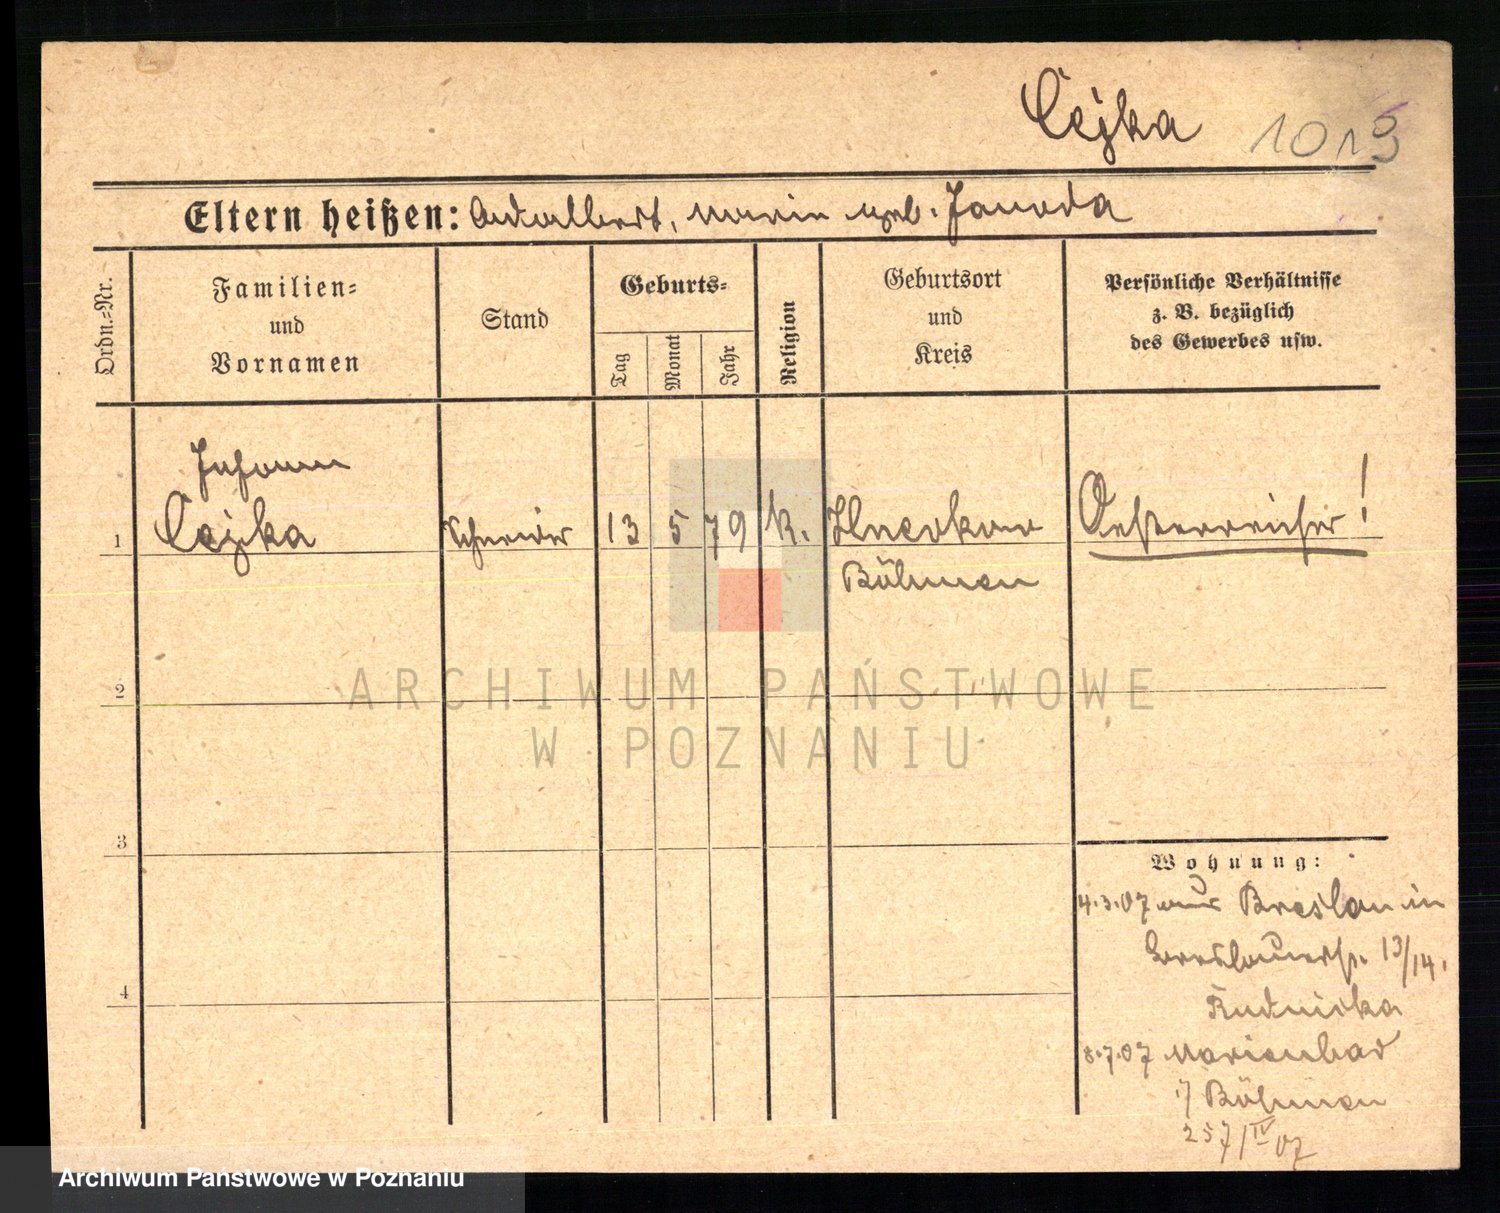 Cejka 1019
Eltern heißen: Adalbert, Marie geb. Janoda
Ordn.=Nr.
Familien=
und
Vornamen
Stand
Geburts=
Tag
Monat
Jahr
Religion
Geburtsort
und
Kreis
Persönliche Verhältnisse
z. B. bezüglich
des Gewerbes usw.
Johann
1 Cejka Schneider 13 5 79 k. Oesterreicher!
Böhmen
2
3
4
Wohnung:
4.3.07 aus Breslau in
Breslauerstr. 13/14.
Rudnicka
8.7.07 Marienbad
i/ Böhmen
257/IV 07
ARCHIWUM PAŃSTWOWE
W POZNANIU
Archiwum Państwowe w Poznaniu